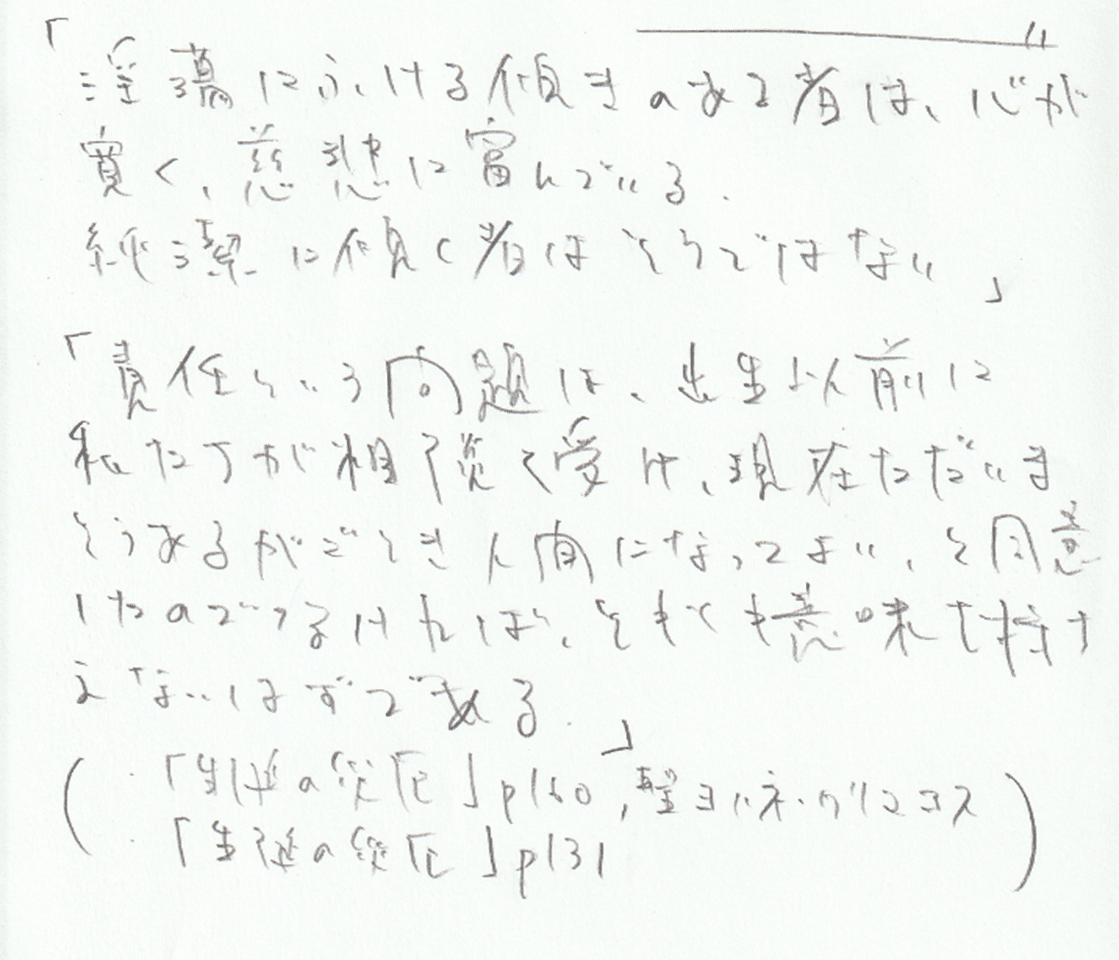 「淫蕩にふける傾きのある者は、心が
寛く、慈悲に富んでいる.
純潔に傾く者はそうではない」
「責任という問題は、出生以前に
私たちが相談を受け、現在ただいま
そうあるがごとき人間になってよい、と同意
したのでなければ、そもそも意味を持ち
えないはずである.」
(・「生誕の災厄」p160, 聖ヨハネ・クリマコス
・「生誕の災厄」p131 )